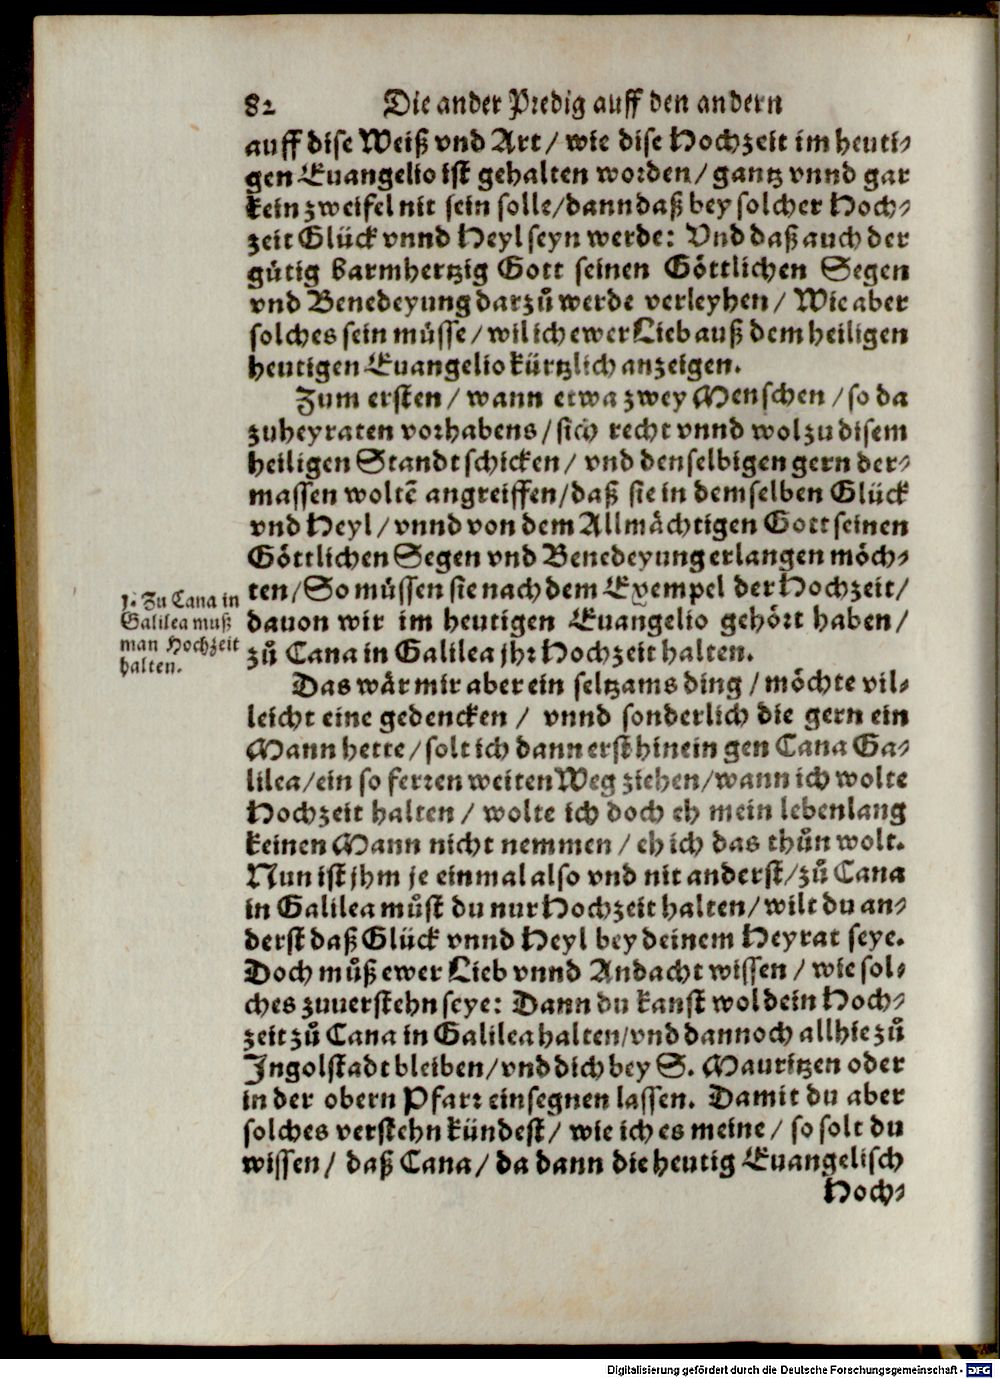 82 Die ander Predig auff den andern
auff dise Weiß vnd Art / wie dise Hochzeit im heuti-
gen Euangelio ist gehalten worden / gantz vnnd gar
kein zweifel nit sein solle / dann daß bey solcher Hoch-
zeit Glück vnnd Heyl seyn werde: Vnd daß auch der
gütig barmhertzig Gott seinen Göttlichen Segen
vnd Benedeyung darzů werde verleyhen / Wie aber
solches sein müsse / wil ich ewer Lieb auß dem heiligen
heutigen Euangelio kürtzlich anzeigen.
Zum ersten / wann etwa zwey Menschen / so da
zuheyraten vorhabens / sich recht vnnd wol zu disem
heiligen Standt schicken / vnd denselbigen gern der-
massen woltẽ angreiffen / daß sie in demselben Glück
vnd Heyl / vnnd von dem Allmächtigen Gott seinen
Göttlichen Segen vnd Benedeyung erlangen möch-
ten / So müssen sie nach dem Exempel der Hochzeit /
dauon wir im heutigen Euangelio gehört haben /
zů Cana in Galilea jhr Hochzeit halten.
1. Zu Cana in
Galilea muß
man Hochzeit
halten.
Das wär mir aber ein seltzams ding / möchte vil-
leicht eine gedencken / vnnd sonderlich die gern ein
Mann hette / solt ich dann erst hinein gen Cana Ga-
lilea / ein so ferren weiten Weg ziehen / wann ich wolte
Hochzeit halten / wolte ich doch eh mein lebenlang
keinen Mann nicht nemmen / eh ich das thůn wolt.
Nun ist jhm je einmal also vnd nit anderst / zů Cana
in Galilea můst du nur Hochzeit halten / wilt du an-
derst daß Glück vnnd Heyl bey deinem Heyrat seye.
Doch můß ewer Lieb vnnd Andacht wissen / wie sol-
ches zuuerstehn seye: Dann du kanst wol dein Hoch-
zeit zů Cana in Galilea halten / vnd dannoch allhie zů
Ingolstadt bleiben / vnd dich bey S. Mauritzen oder
in der obern Pfarr einsegnen lassen. Damit du aber
solches verstehn kündest / wie ich es meine / so solt du
wissen / daß Cana / da dann die heutig Euangelisch
Hoch-
Digitalisierung gefördert durch die Deutsche Forschungsgemeinschaft - DFG